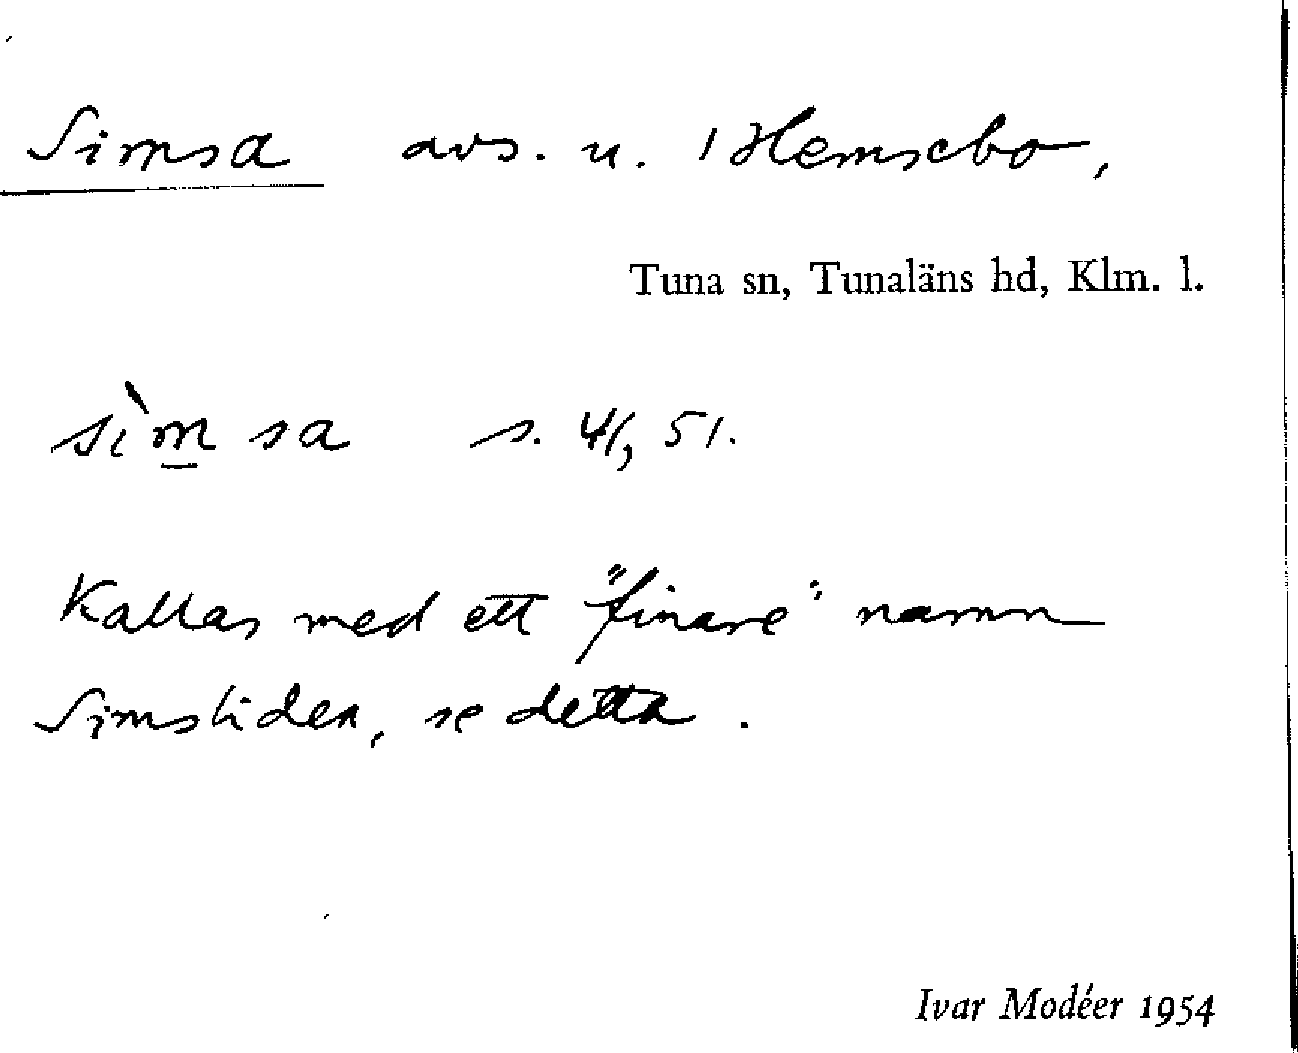 Simsa avs. u. 1 Hemsebo,
Tuna sn, Tunaläns hd, Klm. l.
sìm̱sa s. 41, 51.
Kallas med ett "finare" namn
Simsliden, se detta.
Ivar Modéer 1954